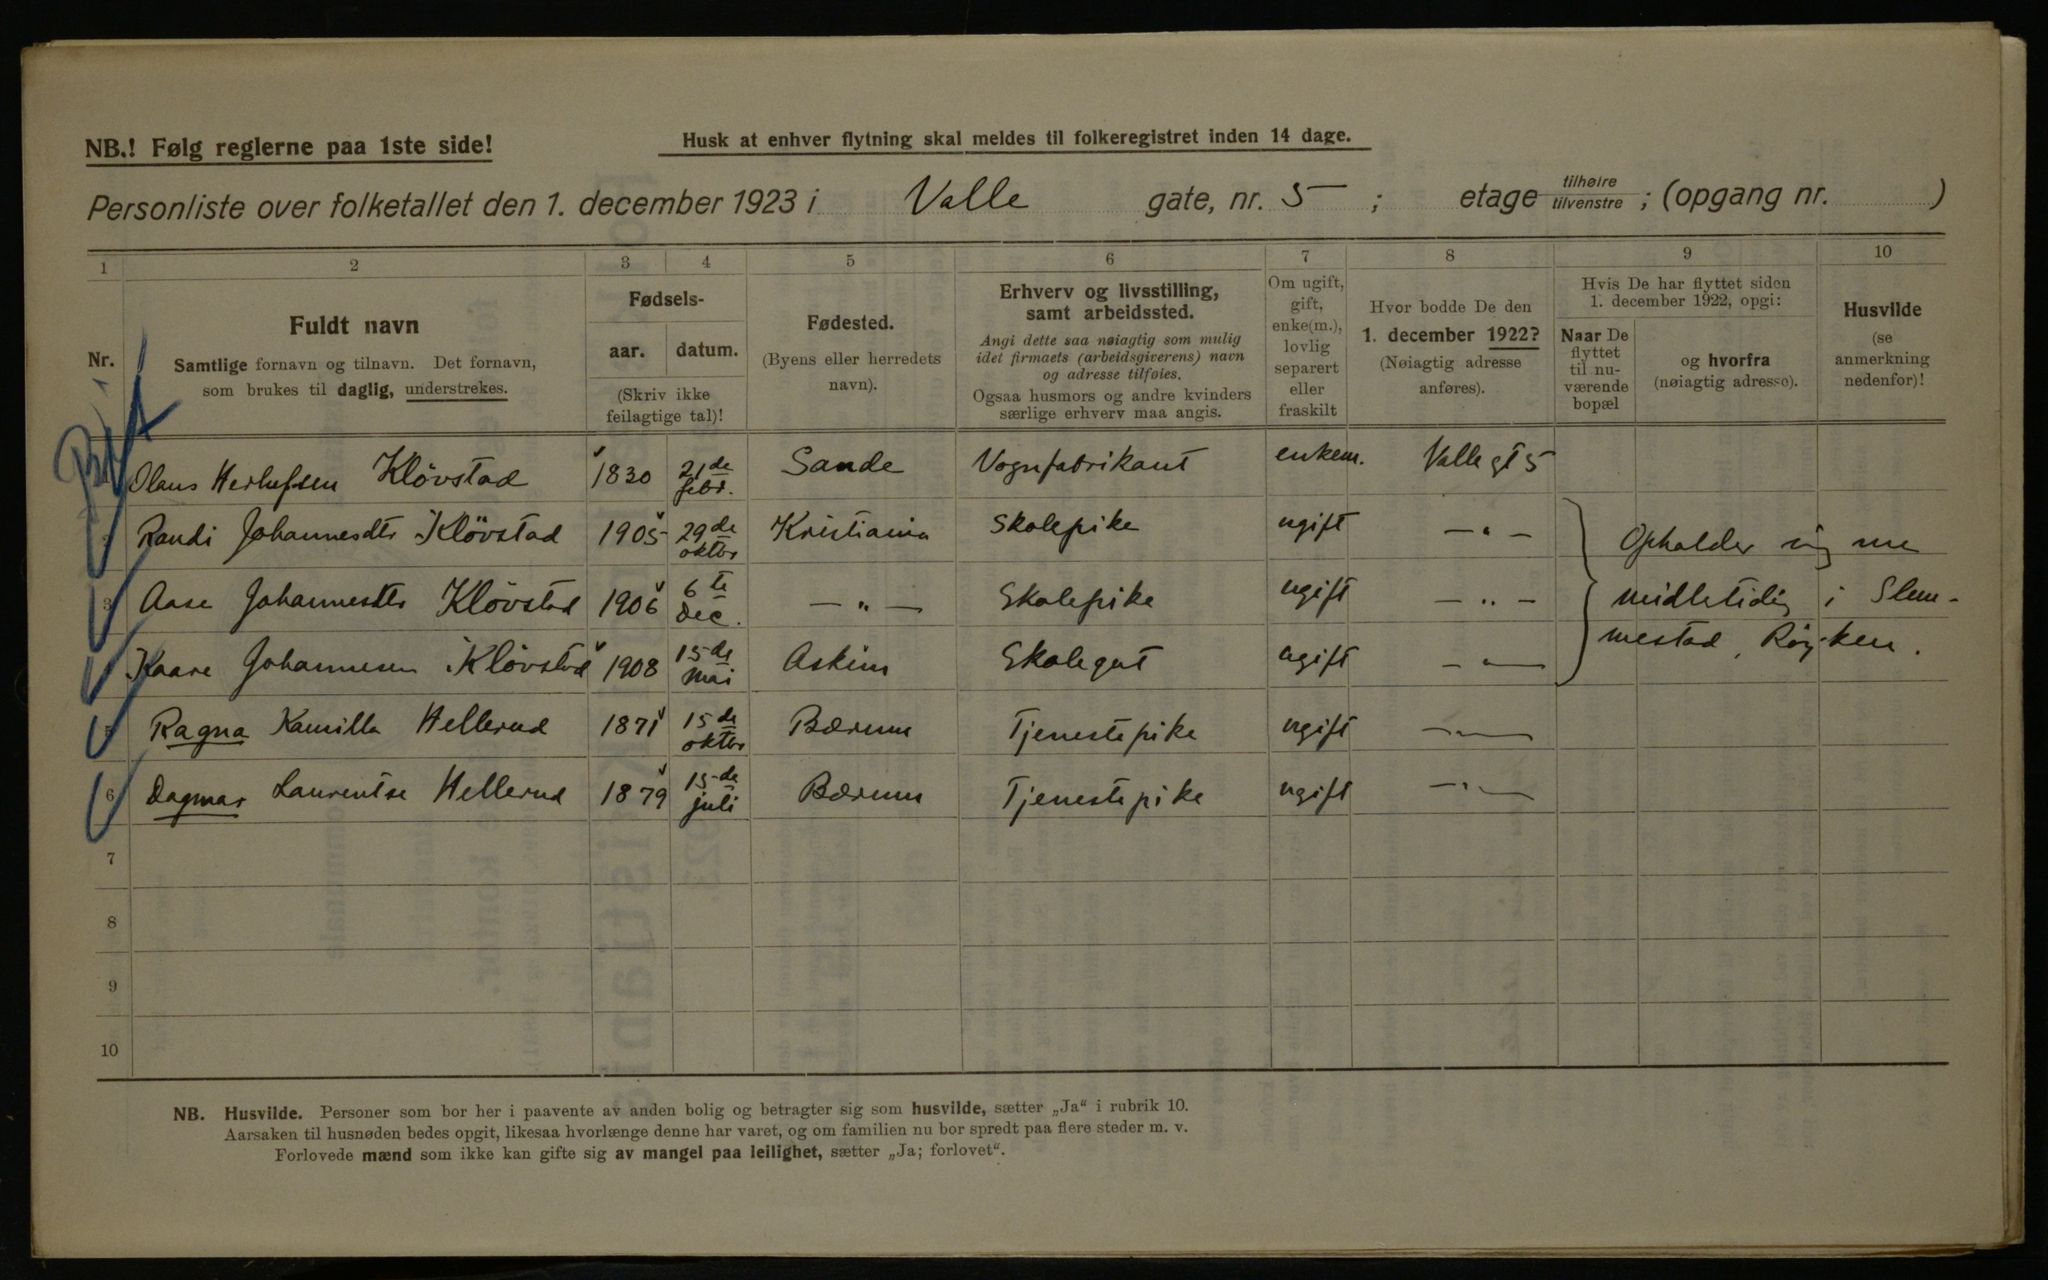 NB.! Følg reglerne paa 1ste side!
Husk at enhver flytning skal meldes til folkeregistret inden 14 dage.
Personliste over folketallet den 1. december 1923 i Valle gate, nr. 5 ; etage tilhøire tilvenstre ; (opgang nr. )
1 2 3 4 5 6 7 8 9 10
Nr.
Fuldt navn
Samtlige fornavn og tilnavn. Det fornavn,
som brukes til daglig, understrekes.
Fødsels-
aar. datum.
(Skriv ikke
feilagtige tal)!
Fødested.
(Byens eller herredets
navn).
Erhverv og livsstilling,
samt arbeidssted.
Angi dette saa nøiagtig som mulig
idet firmaets (arbeidsgiverens) navn
og adresse tilføies.
Ogsaa husmors og andre kvinders
særlige erhverv maa angis.
Om ugift,
gift,
enke(m.),
lovlig
separert
eller
fraskilt
Hvor bodde De den
1. december 1922?
(Nøiagtig adresse
anføres).
Hvis De har flyttet siden
1. december 1922, opgi:
Naar De
flyttet
til nu-
værende
bopæl
og hvorfra
(nøiagtig adresse).
Husvilde
(se
anmerkning
nedenfor)!
Olaus Klövstad 1830 21de febr. Sande Vognfabrikant enkem. Valle gt 5
2 Randi Johannesdtr Klövstad 1905 29de oktbr Kristiania Skolepike ugift — " —
3 Aase Johannesdtr Klövstad 1906 6te dec. — " — Skolepike ugift — " —
4 Kaare Johannesen Klövstad 1908 15de mai Askim Skolegut ugift — " —
Opholder sig
midletidig i Slem-
mestad, Røyken.
5 Ragna Kamilla Hellerud 1871 15de oktbr Bærum Tjenestepike ugift — " —
6 Dagmar Laurentse Hellerud 1879 15de juli Bærum Tjenestepike ugift — " —
7
8
9
10
NB. Husvilde. Personer som bor her i paavente av anden bolig og betragter sig som husvilde, sætter „Ja“ i rubrik 10.
Aarsaken til husnøden bedes opgit, likesaa hvorlænge denne har varet, og om familien nu bor spredt paa flere steder m. v.
Forlovede mænd som ikke kan gifte sig av mangel paa leilighet, sætter „Ja; forlovet“.